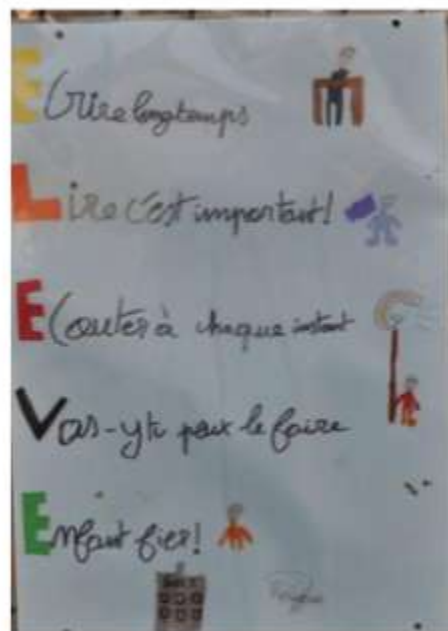 Ecrire longtemps
Lire c'est important!
Ecouter à chaque instant
Vas-y tu peux le faire
Enfant fier!